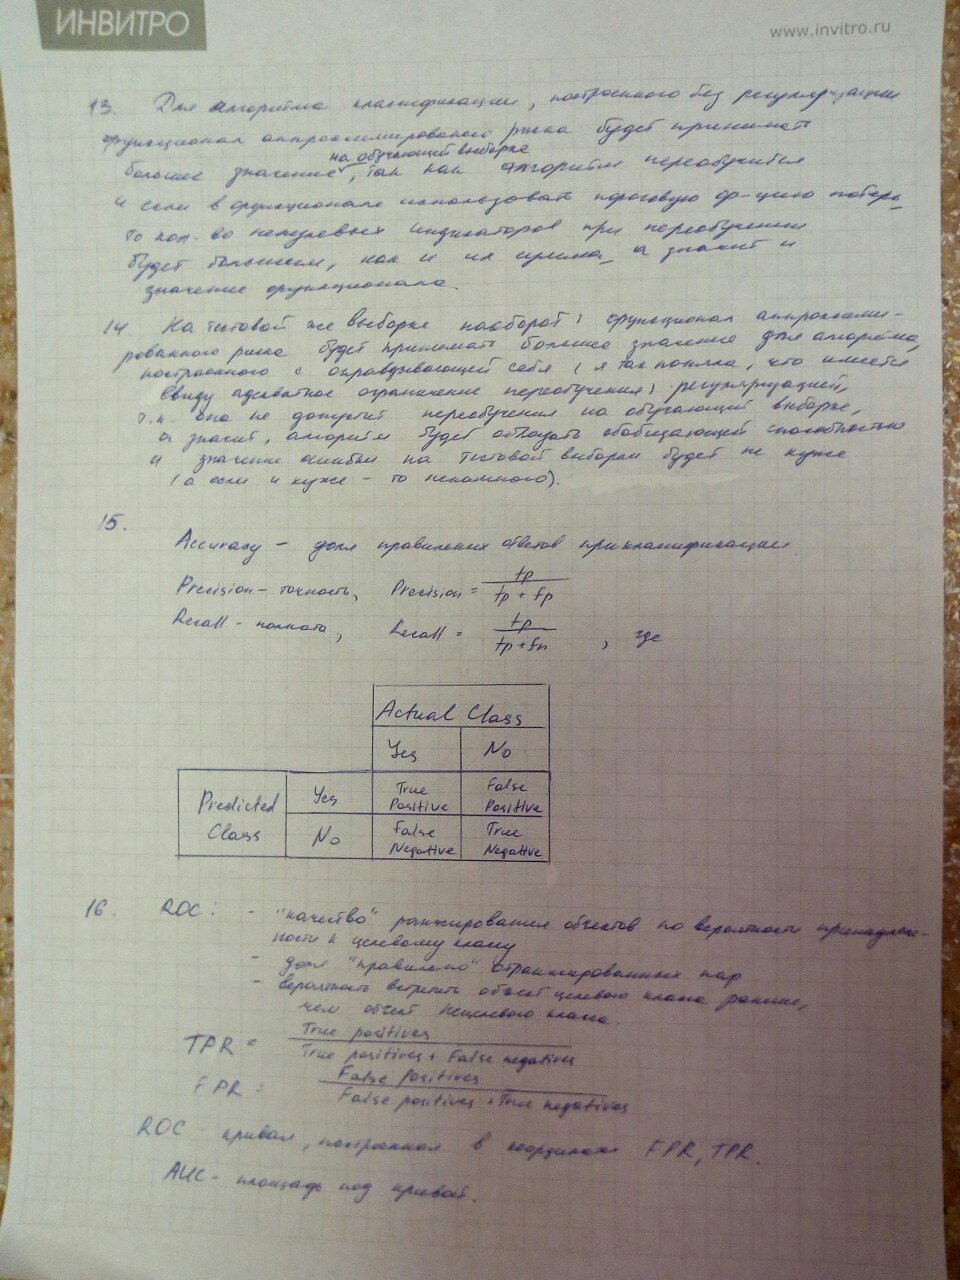 ИНВИТРО
www.invitro.ru
13. Для алгоритма классификации, построенного без регуляризации
функционал аппроксимированого риска будет принимать
на обучающей выборке
большее значение, так как алгоритм переобучится
и если в функционале использовать пороговую ф-цию потерь,
то кол-во ненулевых индикаторов при переобучении
будет большим, как и их сумма, а значит и
значение функционала.
14. На тестовой же выборке наоборот, функционал аппроксими-
рованного риска будет принимать большее значение для алгоритма,
построенного с оправдывающей себя (я так поняла, что имеется
ввиду адекватное ограничение переобучения) регуляризацией,
т.к. она не допустит переобучения на обучающей выборке,
а значит, алгоритм будет обладать обобщающей способностью
и значение ошибки на тестовой выборке будет не хуже
(а если и хуже - то ненамного).
15.
Accuracy - доля правильных ответов при классификации
Precision - точность, Precision = tp / tp + fp
Recall - полнота, Recall = tp / tp + fn , где
Actual Class
Yes No
Predicted Class Yes True Positive False Positive
No False Negative True Negative
16. ROC: - "качество" ранжирования объектов по вероятности принадлеж-
ности к целевому классу
- доля "правильно" отранжированных пар
- вероятность встретить объект целевого класса раньше,
чем объект нецелевого класса
TPR = True positives / True positives + False negatives
FPR = False Positives / False positives + True negatives
ROC - кривая, построенная в координатах FPR, TPR.
AUC - площадь под кривой.